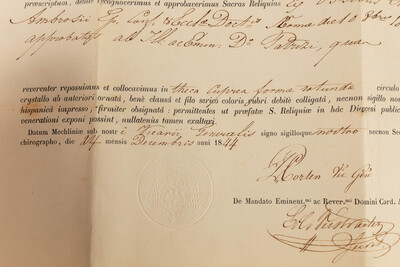 præscriptum, denuo recognoscerimus et approbaverimus Sacras Reliquias
Ambrosii Ep. Conf. Eccl. Doct.
approbatas ab Ill. ac Emin. D. Patrizi, quam
reverenter reposuimus et collocavimus in theca cuprea forma rotunda
circulo
crystallo ab anteriori ornatâ, benè clausâ et filo serico coloris rubri debitè colligatâ, necnon sigillo nost
hispanicâ impresso, firmiter obsignatâ: permittentes ut præfatæ S. Reliquiæ in hâc Diœcesi publi
venerationi exponi possint, nullatenùs tamen exaltari.
Datum Mechliniæ sub nostri Vicarii Generalis signo sigilloque nostro necnon Sec
chirographo, die 14 mensis Decembris anni 1844
Vic Gen
De Mandato Eminent. ac Rever. Domini Card. A